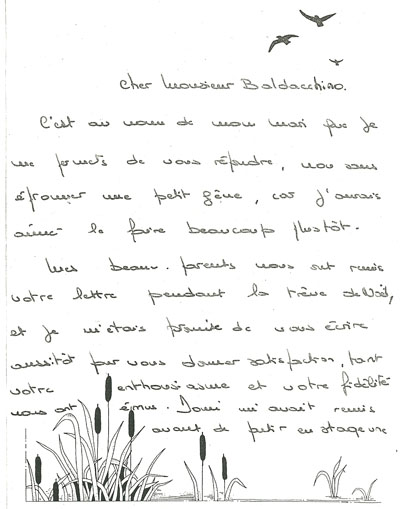 Cher Monsieur Baldacchino.
C'est au nom de mon mari que je
me permets de vous répondre, non sans
éprouver une petit gêne, car j'aurais
aimé le faire beaucoup plustôt.
Mes beaux-parents nous ont remis
votre lettre pendant la trêve de Noël,
et je m'étais promise de vous écrire
aussitôt pour vous donner satisfaction, tant
votre enthousiasme et votre fidélité
nous ont émus. Domi m'avait remis
avant de partir en stage une